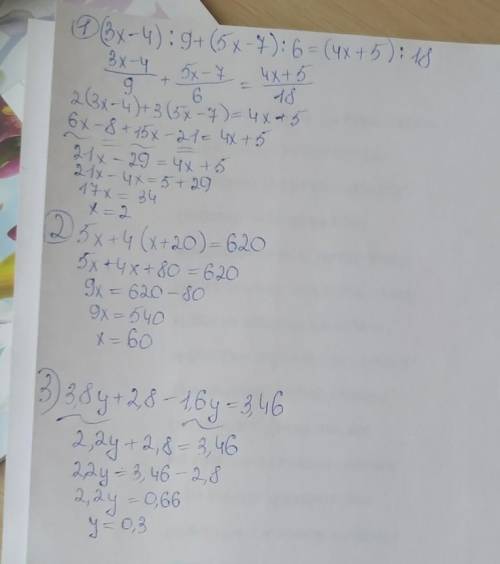 1) (3x-4):9+(5x-7):6=(4x+5):18
(3x-4)/9 + (5x-7)/6 = (4x+5)/18
2(3x-4)+3(5x-7)=4x+5
6x-8+15x-21=4x+5
21x-29=4x+5
21x-4x=5+29
17x=34
x=2
2) 5x+4(x+20)=620
5x+4x+80=620
9x=620-80
9x=540
x=60
3) 3,8y+2,8-1,6y=3,46
2,2y+2,8=3,46
2,2y=3,46-2,8
2,2y=0,66
y=0,3